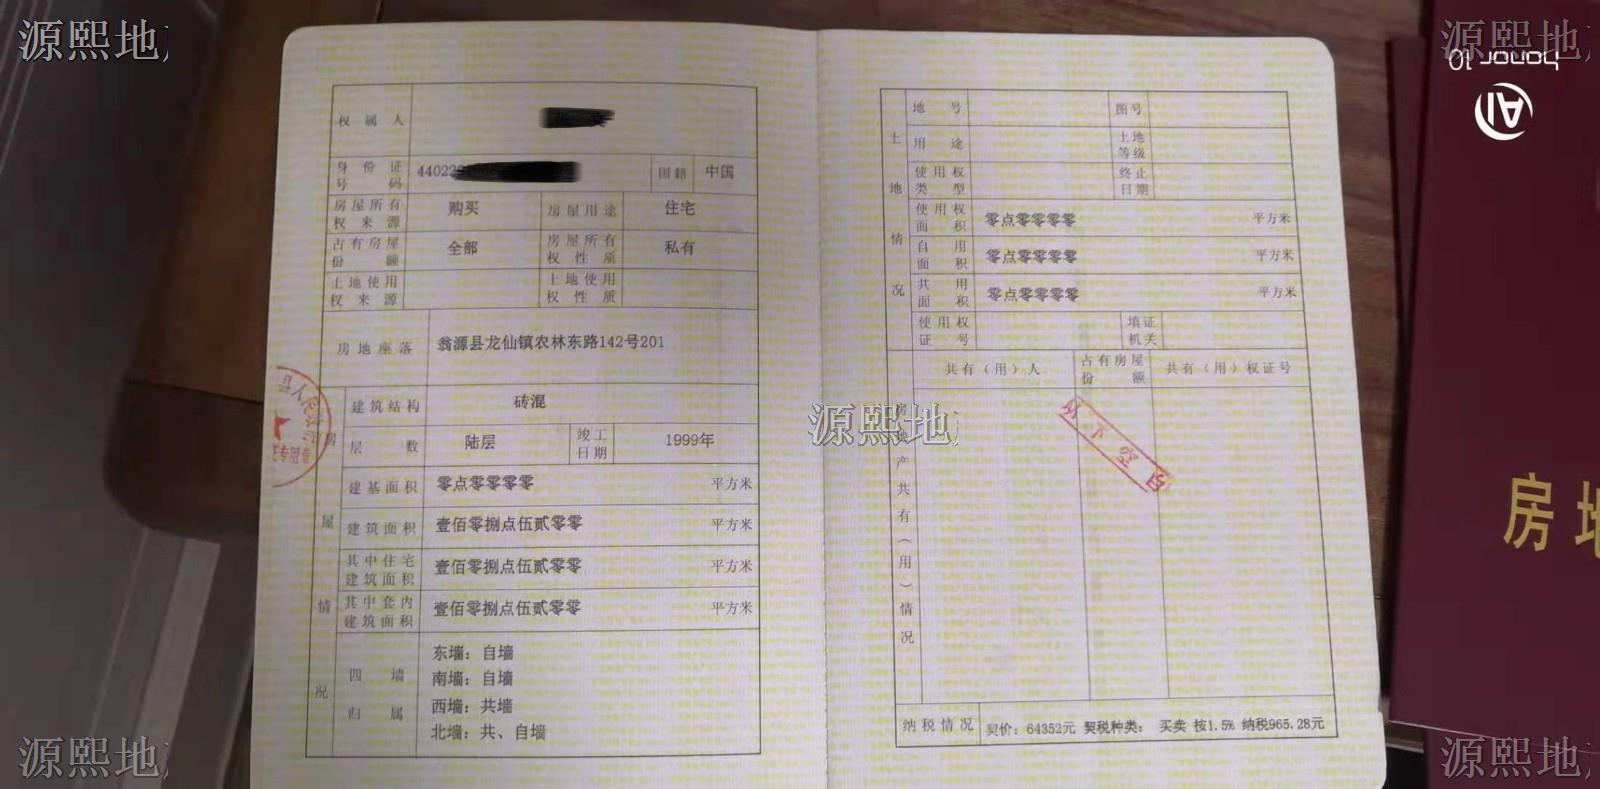 源熙地
源熙地
honor 10
AI
权属人
身份证号码
44022
国籍
中国
房屋所有权来源
购买
房屋用途
住宅
占有房屋份额
全部
房屋所有权性质
私有
土地使用权来源
土地使用权性质
房地座落
翁源县龙仙镇农林东路142号201
房屋情况
建筑结构
砖混
层数
陆层
竣工日期
1999年
建基面积
零点零零零零
平方米
建筑面积
壹佰零捌点伍贰零零
平方米
其中住宅建筑面积
壹佰零捌点伍贰零零
平方米
其中套内建筑面积
壹佰零捌点伍贰零零
平方米
四墙归属
东墙：自墙
南墙：自墙
西墙：共墙
北墙：共、自墙
县人民政
专用章
土地情况
地号
图号
用途
土地等级
使用权类型
终止日期
使用权面积
零点零零零零
平方米
自用面积
零点零零零零
平方米
共用面积
零点零零零零
平方米
使用权证号
填证机关
房地产共有（用）情况
共有（用）人
占有房屋份额
共有（用）权证号
以下空白
源熙地
纳税情况
契价：64352元 契税种类： 买卖 按1.5% 纳税965.28元
房地
源熙地
源熙地